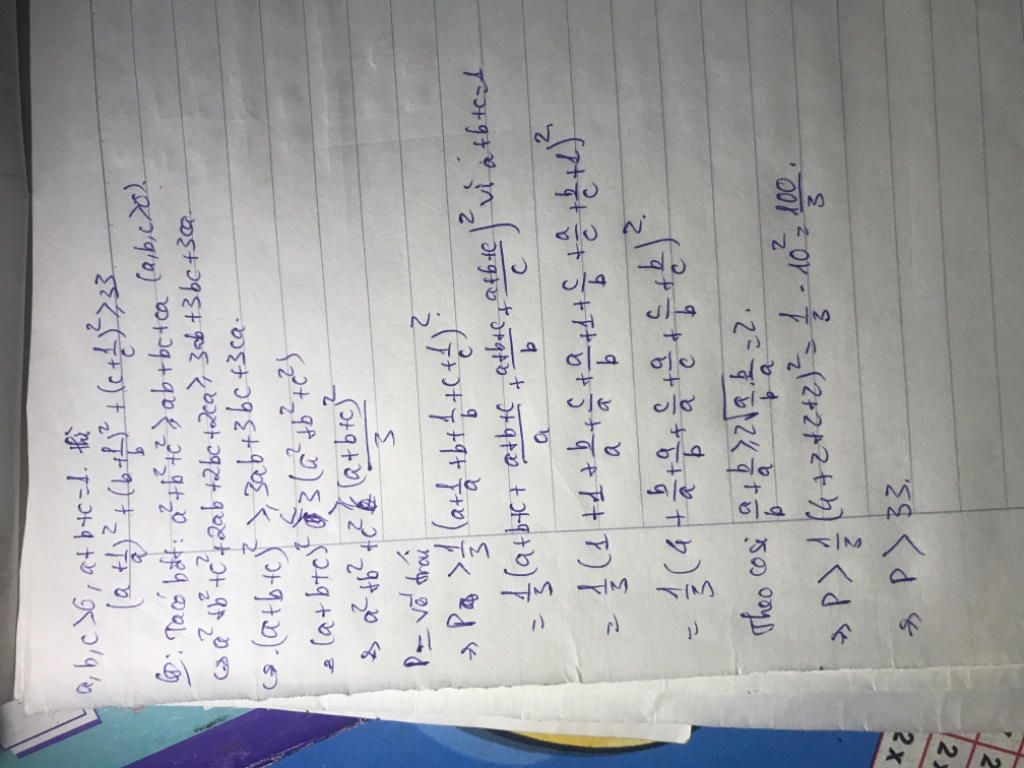 a, b, c > 0, a+b+c=1.
(a + 1/a)² + (b + 1/b)² + (c + 1/c)² ≥ 33
Ta có bđt: a² + b² + c² ≥ ab + bc + ca (a, b, c > 0)
⇔ a² + b² + c² + 2ab + 2bc + 2ca ≥ 3ab + 3bc + 3ca
⇔ (a+b+c)² ≥ 3ab + 3bc + 3ca.
(a+b+c)² ≤ 3(a² + b² + c²)
⇒ a² + b² + c² ≥ (a+b+c)²/3
P = vế trái
⇒ P ≥ 1/3 (a + 1/a + b + 1/b + c + 1/c)².
= 1/3 (a+b+c + (a+b+c)/a + (a+b+c)/b + (a+b+c)/c)² vì a+b+c=1
= 1/3 (1 + 1 + b/a + c/a + a/b + 1 + c/b + a/c + b/c + 1)².
= 1/3 (4 + b/a + a/b + c/a + a/c + c/b + b/c)².
Theo cosi a/b + b/a ≥ 2√(a/b · b/a) = 2.
⇒ P > 1/3 (4+2+2+2)² = 1/3 · 10² = 100/3.
⇒ P > 33.
2x
2
2